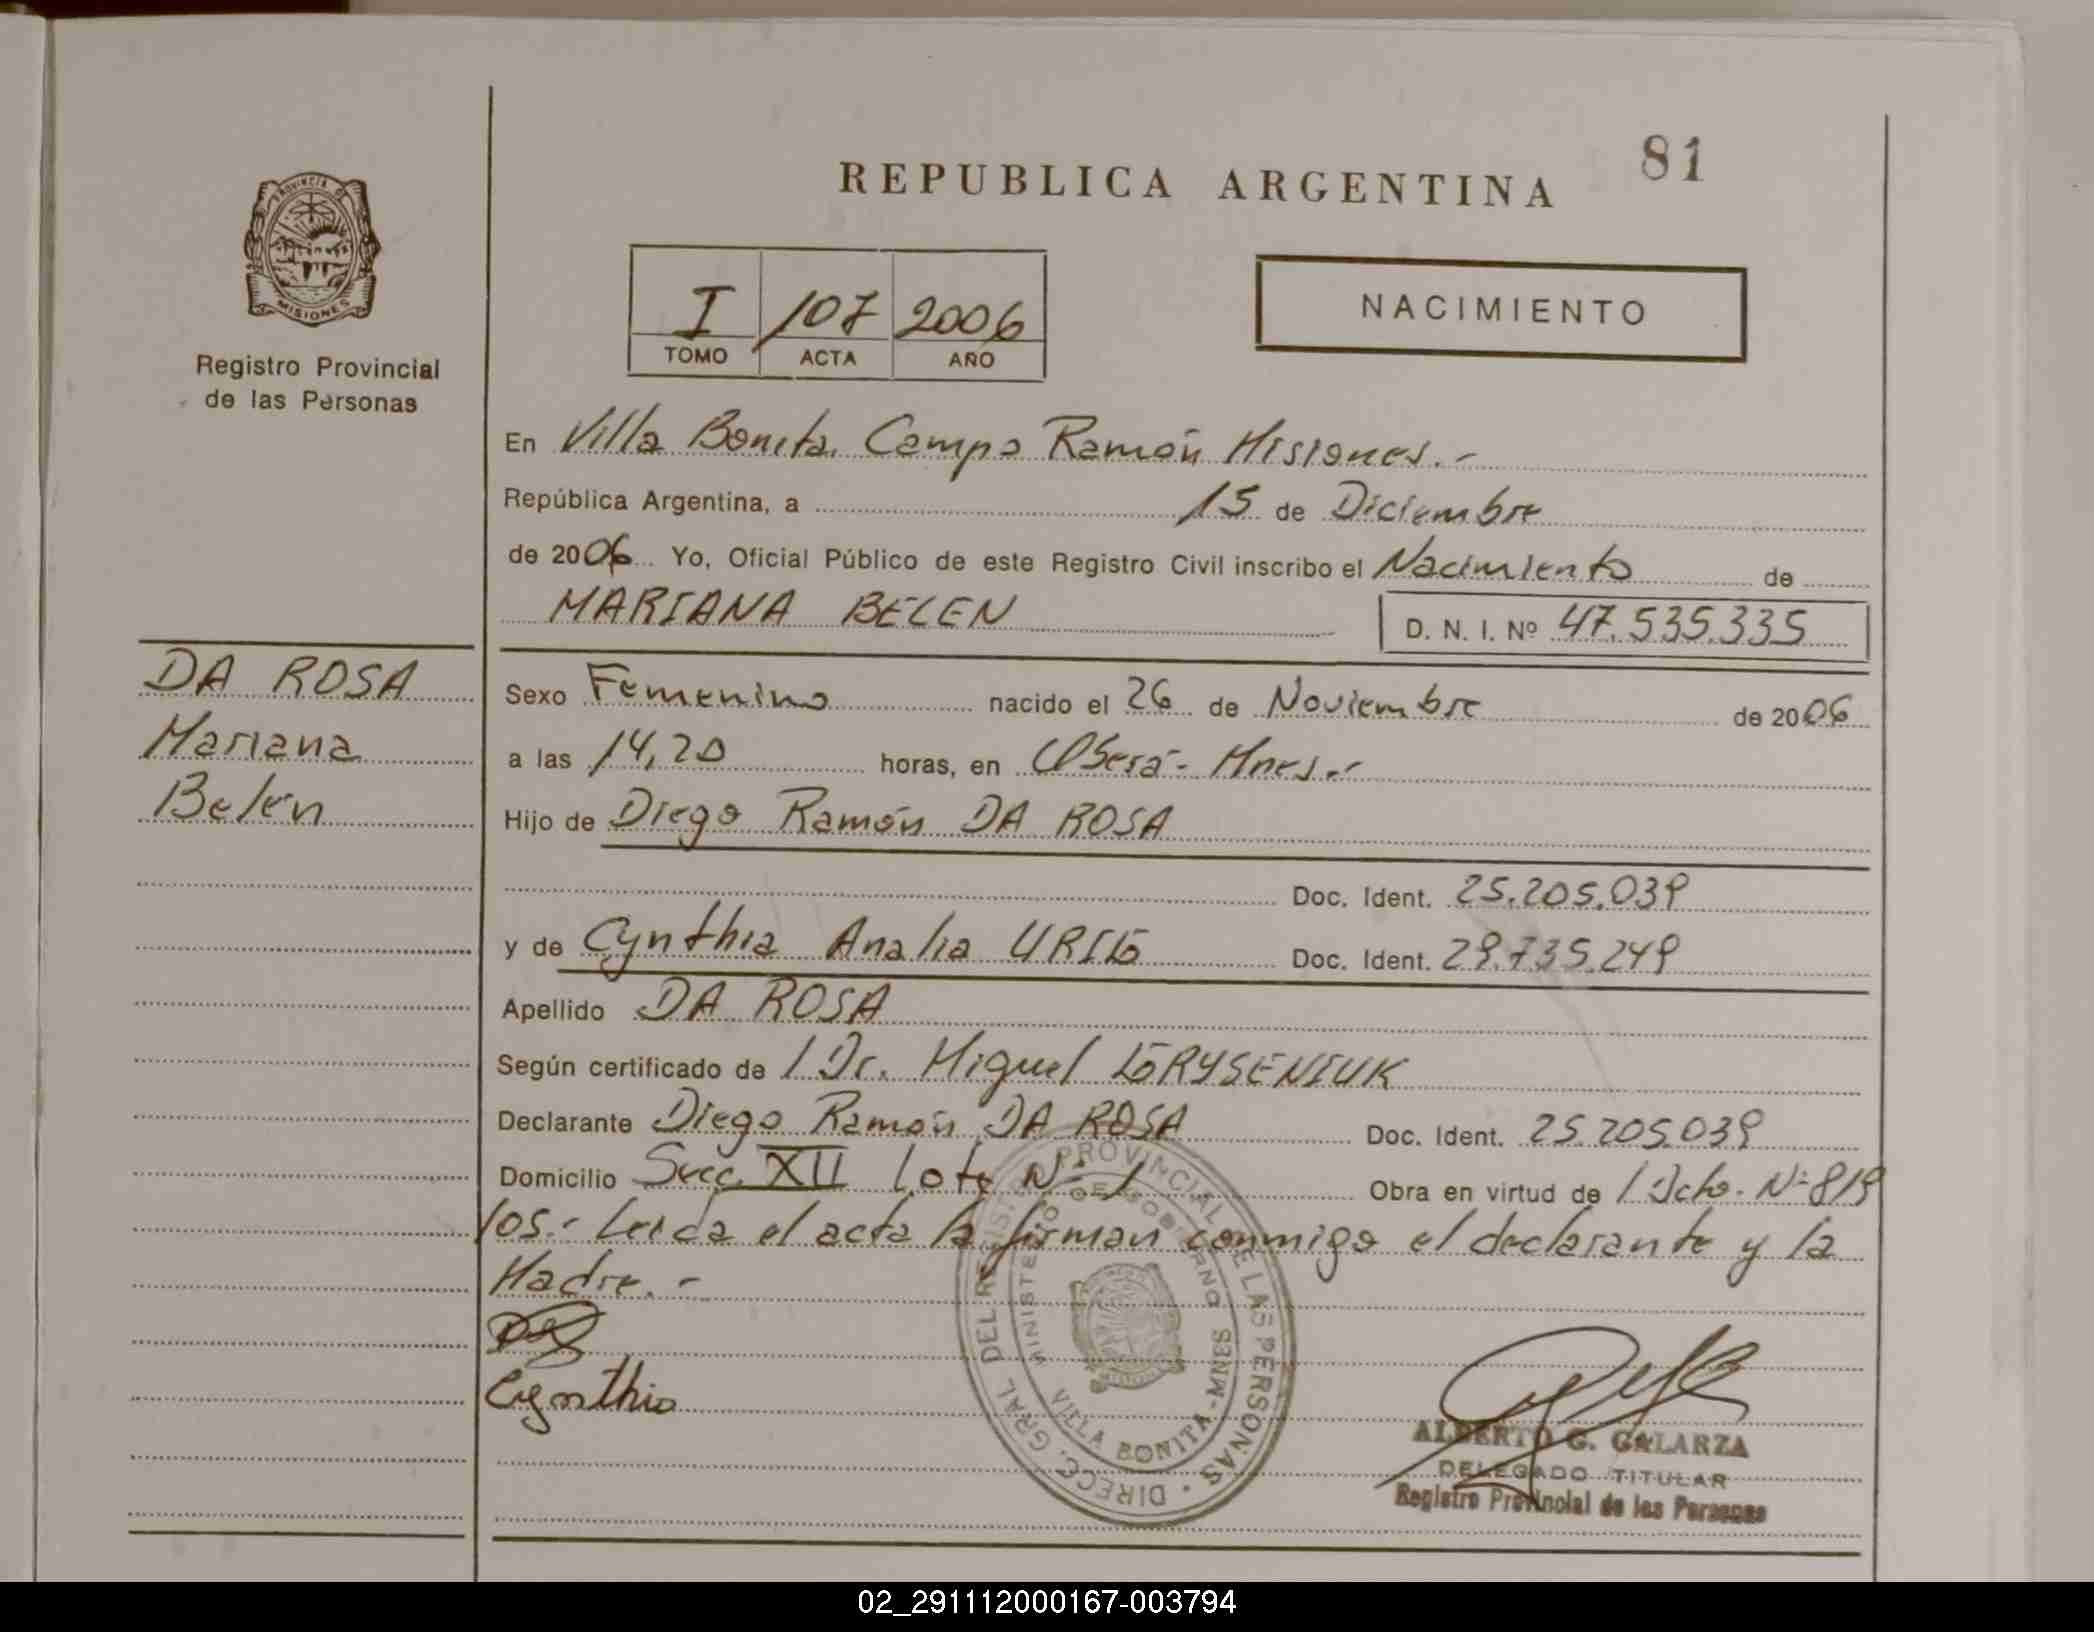 81
REPUBLICA ARGENTINA
PROVINCIA DE
MISIONES
Registro Provincial
de las Personas
I 107 2006
TOMO ACTA AÑO
NACIMIENTO
En Villa Bonita. Campo Ramón Misiones.-
República Argentina, a 15 de Diciembre
de 2006 Yo, Oficial Público de este Registro Civil inscribo el Nacimiento de
MARIANA BELEN D. N. I. Nº 47.535.335
DA ROSA
Mariana
Belén
Sexo Femenino nacido el 26 de Noviembre de 2006
a las 14,20 horas, en Oberá- Mnes.-
Hijo de Diego Ramón DA ROSA
Doc. Ident. 25.205.039
y de Cynthia Analia Doc. Ident. 29.735.249
Apellido DA ROSA
Según certificado de l Dr. Miguel
Declarante Diego Ramón DA ROSA Doc. Ident. 25.205.039
Domicilio Secc. XII lote Nº 1 Obra en virtud de l Dcto. Nº 819
/05.- Leida el acta la firman conmigo el declarante y la
Madre.-
Cynthia
DIRECC. GRAL. DEL REGISTRO PROVINCIAL DE LAS PERSONAS
MINISTERIO DE GOBIERNO
VILLA BONITA-MNES
ALBERTO G. GALARZA
DELEGADO TITULAR
Registro Provincial de las Personas
02_291112000167-003794